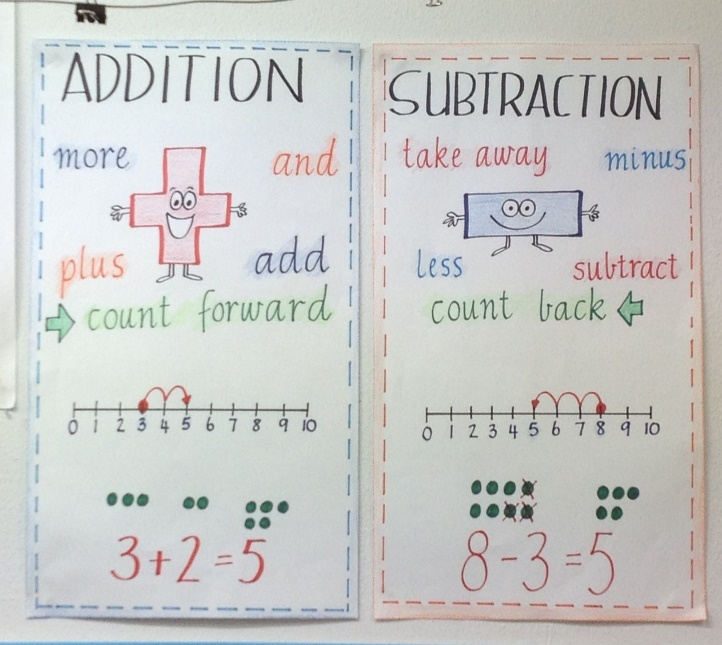 ADDITION
more and
plus add
count forward
0 1 2 3 4 5 6 7 8 9 10
3+2=5
SUBTRACTION
take away minus
less subtract
count back
0 1 2 3 4 5 6 7 8 9 10
8-3=5